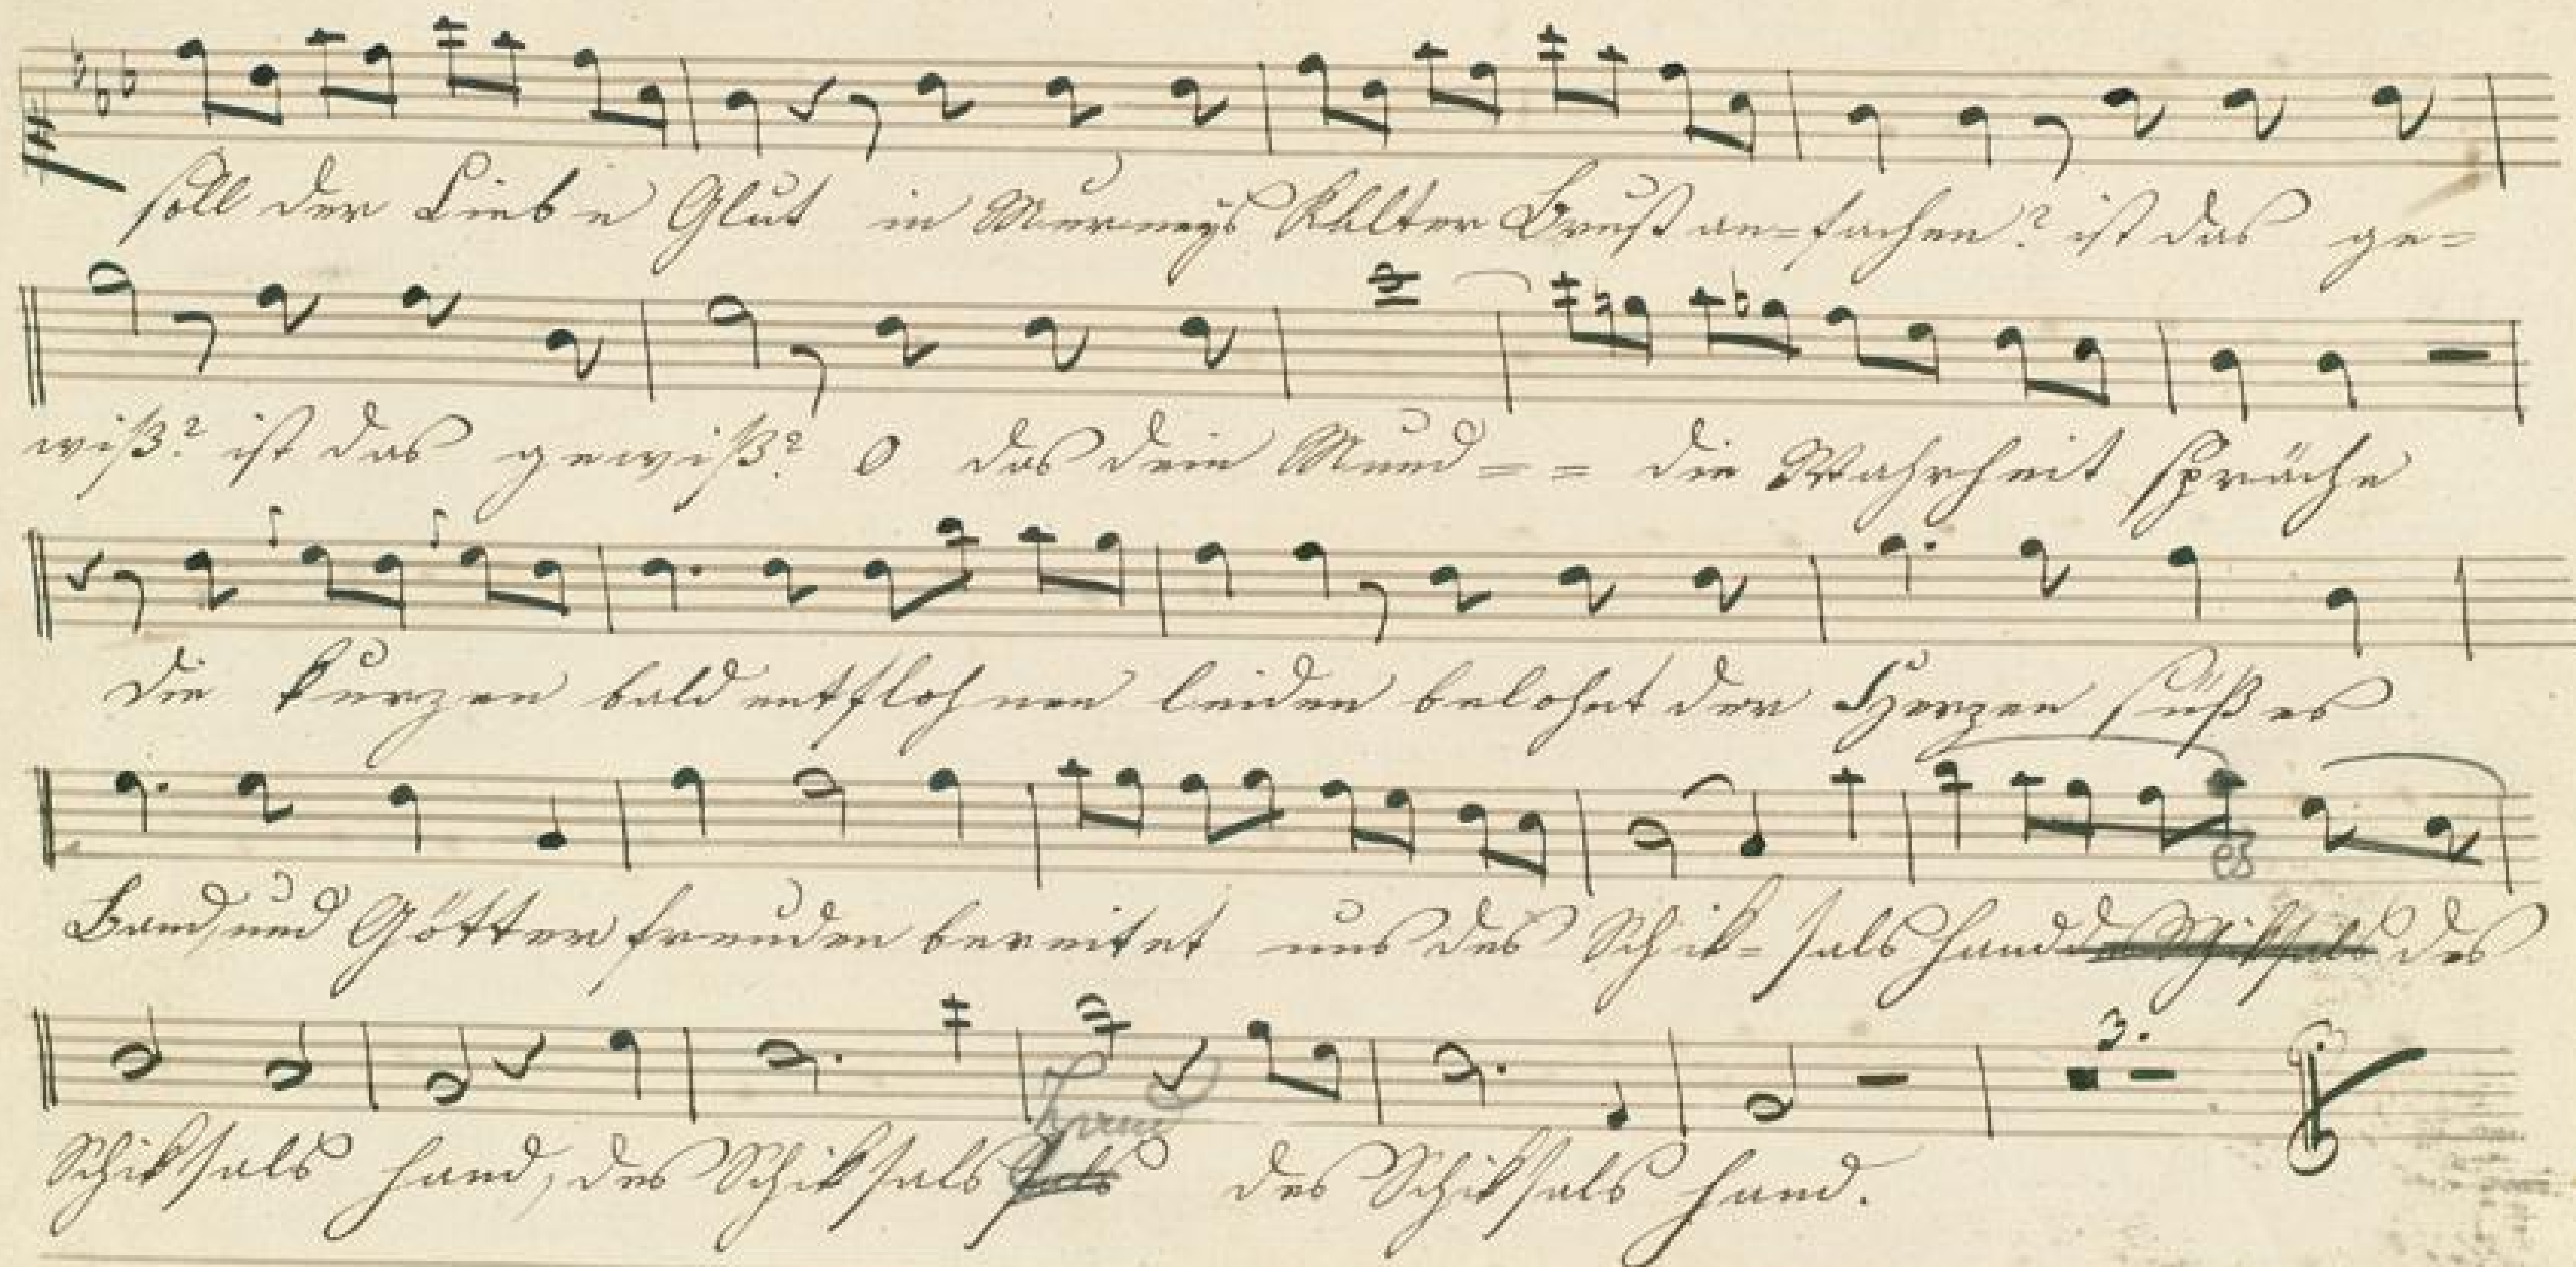 soll der Liebe Glut in Murneys kalter Brust an=fachen? ist das ge=
wiß? ist das gewiß? O das dein Mund = = die Wahrheit spräche
die kurzen bald entflohnen leiden belohnt der Herzen süßes
es
Band, und Götter freuden bereitet uns des Schik=sals hand des Schiksals des
3.
Hand
Schiksals hand, des Schiksals sals des Schiksals hand.